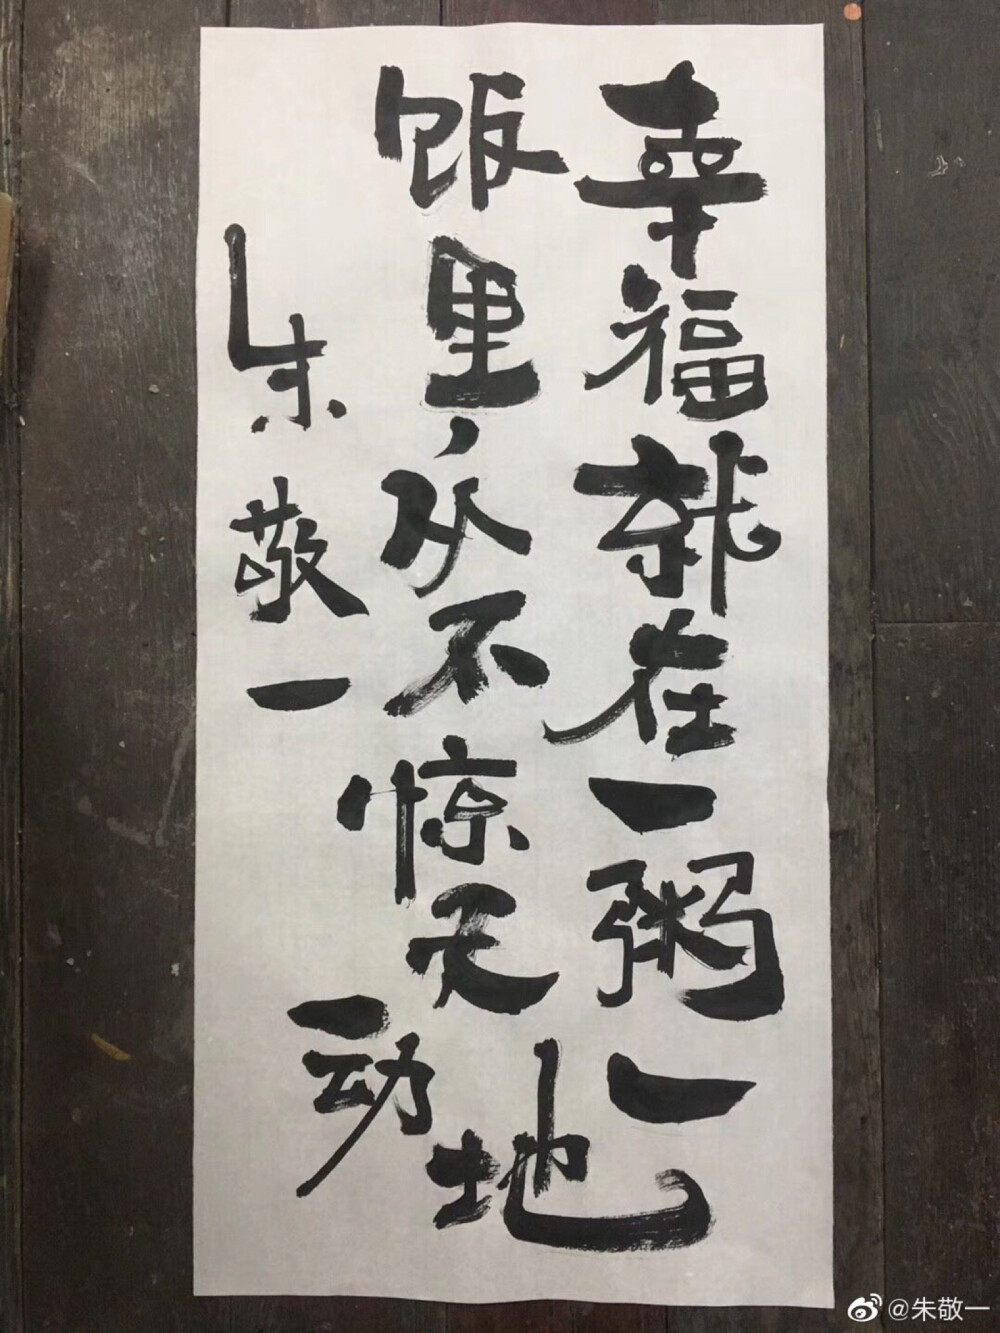 幸福就在一粥一
饭里，从不惊天地
动
朱敬一
@朱敬一